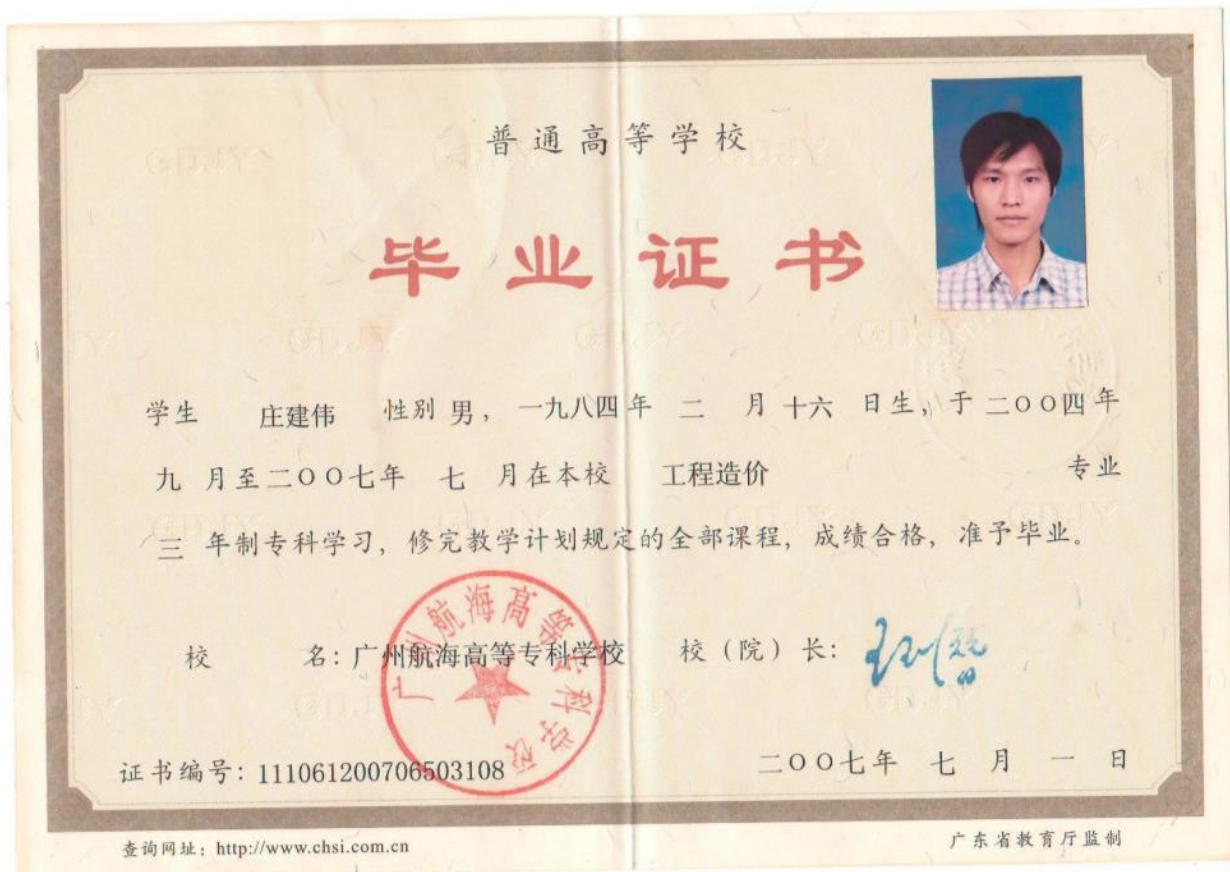 普通高等学校
毕业证书
学生 庄建伟 性别 男，一九八四年 二 月 十六 日生，于 二〇〇四年
九 月至二〇〇七年 七 月在本校 工程造价 专业
三 年制专科学习，修完教学计划规定的全部课程，成绩合格，准予毕业。
校 名：广州航海高等专科学校 校（院）长：
广州航海高等专科学校
证书编号：111061200706503108 二〇〇七年 七 月 一 日
查询网址：http://www.chsi.com.cn 广东省教育厅监制
GDJY